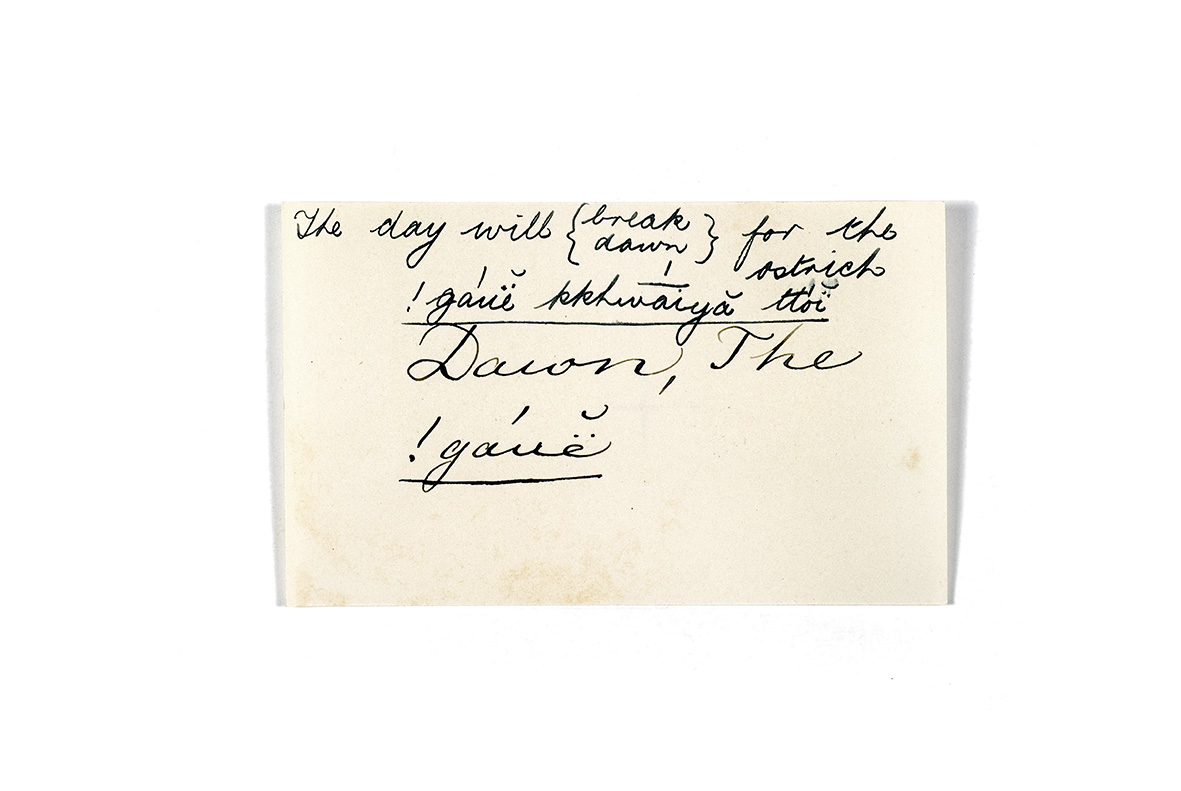 The day will {break / dawn} for the
ostrich
!gáuë̆ kkhwā́iyă ttóï̆
Dawn, The
!gáuë̆